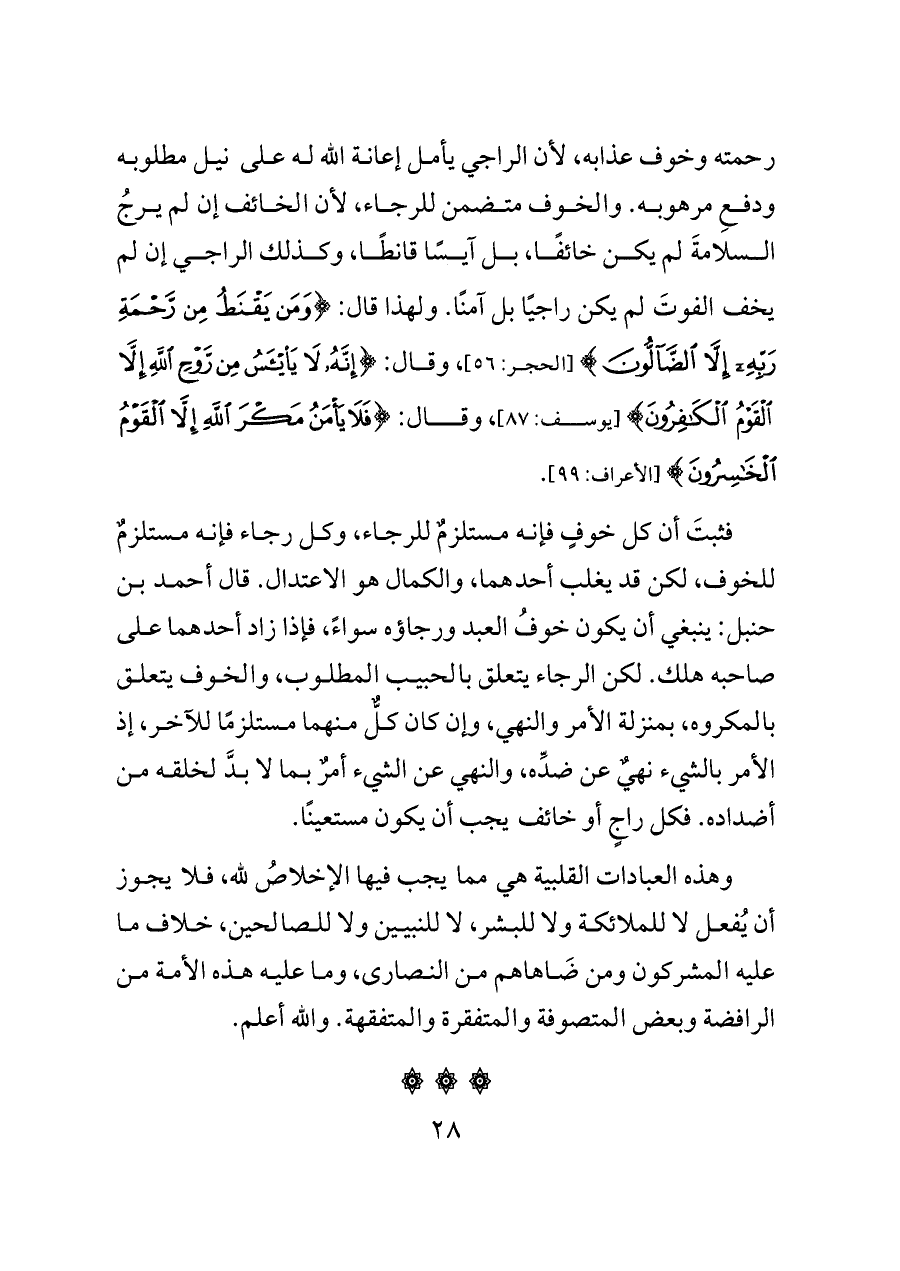 رحمته وخوف عذابه، لأن الراجي يأمل إعانة الله له على نيل مطلوبه
ودفعِ مرهوبه. والخوف متضمن للرجاء، لأن الخائف إن لم يرجُ
السلامةَ لم يكن خائفًا، بل آيسًا قانطًا، وكذلك الراجي إن لم
يخف الفوتَ لم يكن راجيًا بل آمنًا. ولهذا قال: ﴿وَمَن يَقْنَطُ مِن رَّحْمَةِ
رَبِّهِۦٓ إِلَّا ٱلضَّآلُّونَ﴾ [الحجر: ٥٦]، وقال: ﴿إِنَّهُۥ لَا يَا۟يْـَٔسُ مِن رَّوْحِ ٱللَّهِ إِلَّا
ٱلْقَوْمُ ٱلْكَـٰفِرُونَ﴾ [يوسف: ٨٧]، وقال: ﴿فَلَا يَأْمَنُ مَكْرَ ٱللَّهِ إِلَّا ٱلْقَوْمُ
ٱلْخَـٰسِرُونَ﴾ [الأعراف: ٩٩].
فثبتَ أن كل خوفٍ فإنه مستلزمٌ للرجاء، وكل رجاء فإنه مستلزمٌ
للخوف، لكن قد يغلب أحدهما، والكمال هو الاعتدال. قال أحمد بن
حنبل: ينبغي أن يكون خوفُ العبد ورجاؤه سواءً، فإذا زاد أحدهما على
صاحبه هلك. لكن الرجاء يتعلق بالحبيب المطلوب، والخوف يتعلق
بالمكروه، بمنزلة الأمر والنهي، وإن كان كلٌّ منهما مستلزمًا للآخر، إذ
الأمر بالشيء نهيٌ عن ضدِّه، والنهي عن الشيء أمرٌ بما لا بدَّ لخلقه من
أضداده. فكل راجٍ أو خائف يجب أن يكون مستعينًا.
وهذه العبادات القلبية هي مما يجب فيها الإخلاصُ لله، فلا يجوز
أن يُفعل لا للملائكة ولا للبشر، لا للنبيين ولا للصالحين، خلاف ما
عليه المشركون ومن ضَاهاهم من النصارى، وما عليه هذه الأمة من
الرافضة وبعض المتصوفة والمتفقرة والمتفقهة. والله أعلم.
٢٨